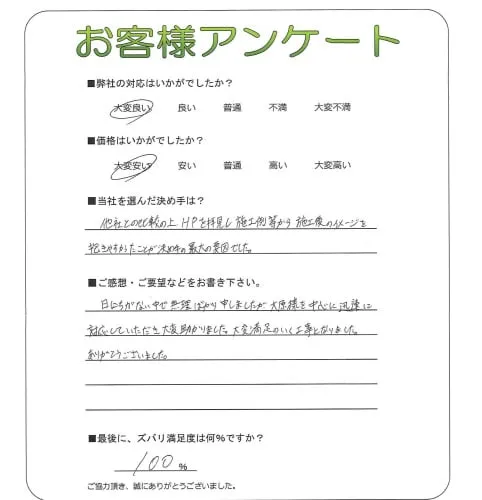 お客様アンケート
■弊社の対応はいかがでしたか?
大変良い 良い 普通 不満 大変不満
■価格はいかがでしたか?
大変安い 安い 普通 高い 大変高い
■当社を選んだ決め手は?
他社との比較の上 HPを拝見し 施工例等から 施工後のイメージを
しやすかったことが決め手の最大の要因でした。
■ご感想・ご要望などをお書き下さい。
日にちがない中で無理ばかり申しましたが 大原様を中心に迅速に
対応していただき大変助かりました。大変満足のいく工事となりました。
ありがとうございました。
■最後に、ズバリ満足度は何%ですか?
100%
ご協力頂き、誠にありがとうございました。